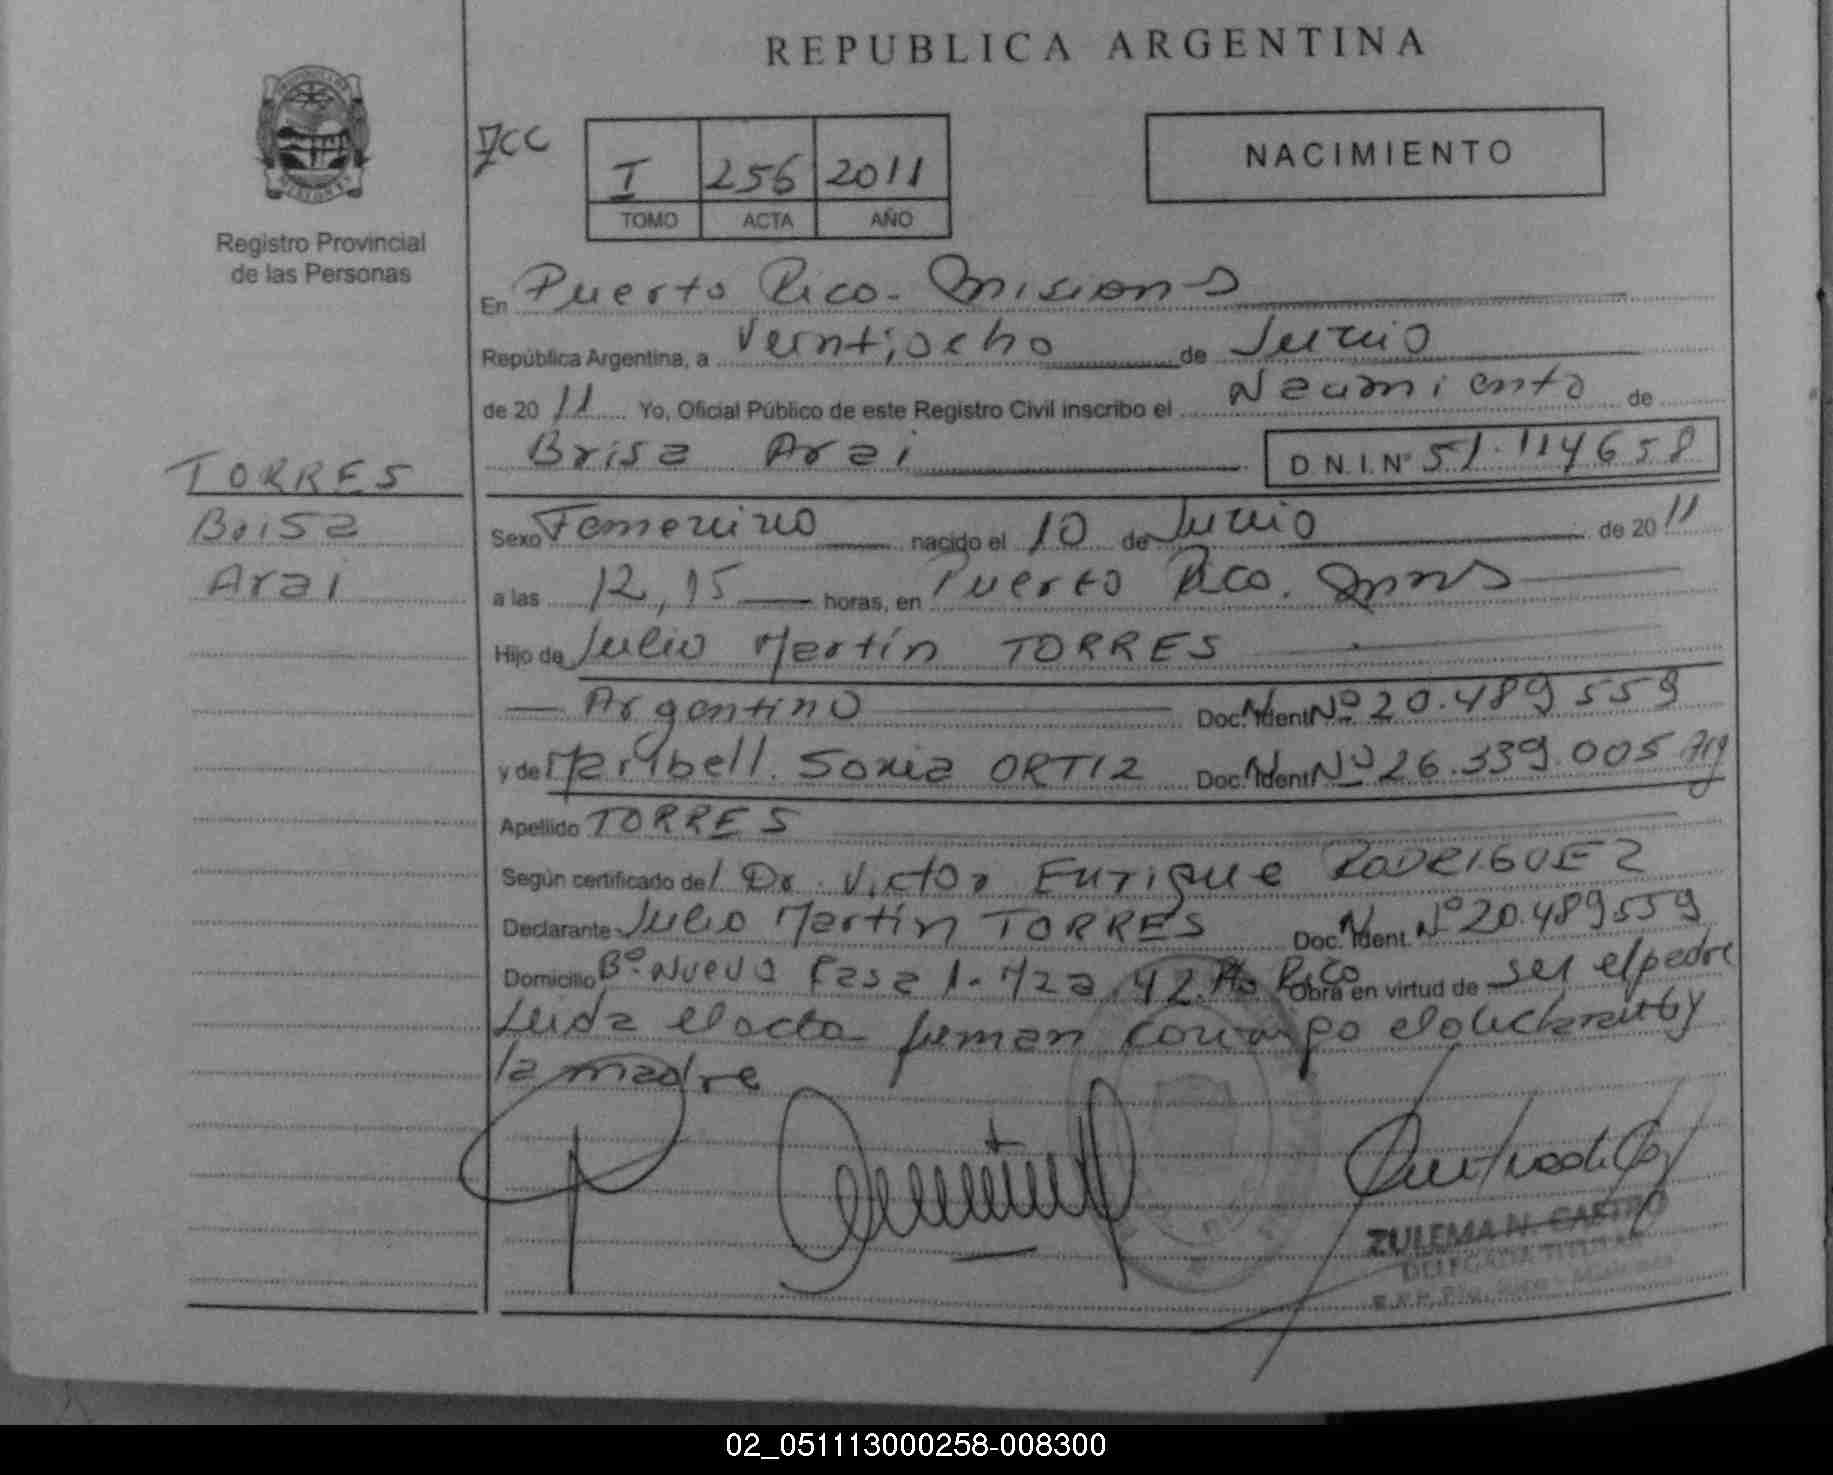 REPUBLICA ARGENTINA
Registro Provincial
de las Personas
I 256 2011
TOMO ACTA AÑO
NACIMIENTO
En Puerto Rico - Misiones
República Argentina, a Veintiocho de Junio
de 20 11 Yo, Oficial Público de este Registro Civil inscribo el Nacimiento de
Brisa Arai D.N.I.Nº 51.114658
TORRES
Brisa
Arai
Sexo Femenino nacido el 10 de Junio de 20 11
a las 12,15 horas, en Puerto Rico. Mnes
Hijo de Julio Martín TORRES
Argentino Doc. Ident Nº 20.489559
y de Maribell Sonia ORTIZ Doc. Ident Nº 26.339.005 Arg
Apellido TORRES
Según certificado del Dr. Victor Enrique RODRIGUEZ
Declarante Julio Martín TORRES Doc. Ident. Nº 20.489559
Domicilio Bº Nuevo Fasa 1. Mza 42. Pto Rico Obra en virtud de ser el padre
Leida el acta firman conmigo el declarante y
la madre
ZULEMA N. CASTRO
DELEGADA TITULAR
02_051113000258-008300